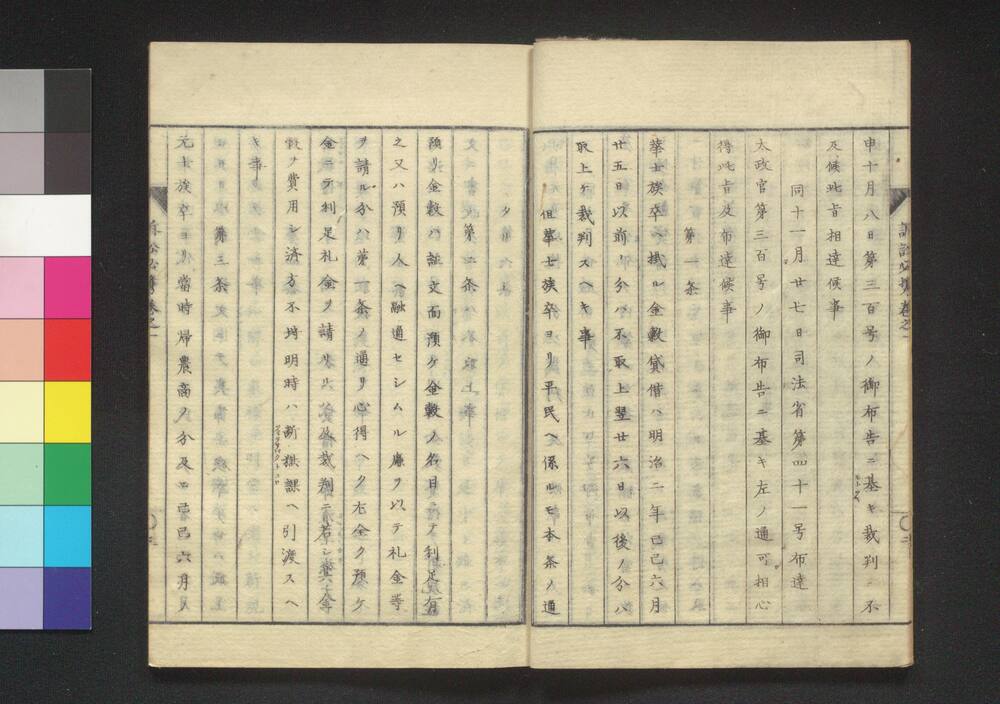 申十月八日第三百号ノ御布告ニ基キ裁判ニ不
及候此旨相達候事
同十一月廿七日司法省第四十一号布達
太政官第三百号ノ御布告ニ基キ左ノ通可相心
得此旨及布達候事
第一条
華士族卒ヘ掛ル金穀貸借ハ明治二年己巳六月
廿五日以前ノ分ハ不取上翌廿六日以後ノ分ハ
取上ケ裁判スヘキ事
但華士族卒ヨリ平民ヘ係ルモ本条ノ通
タルヘキ事
第二条
預リ金穀ハ証文面預ケ金穀ノ名目ニテ利足有
之又ハ預リ人ヘ融通セシムル廉ヲ以テ札金等
ヲ請ル分ハ第一条ノ通リ心得ヘク右全ク預ケ
金ニテ利足札金ヲ請
穀ヲ費用シ済方不埒明時ハ断獄課ヘ引渡スヘ
キ事
第三条
元士族卒ヨリ当時帰農商ノ分及ヒ己巳六月
訴訟必携巻之一